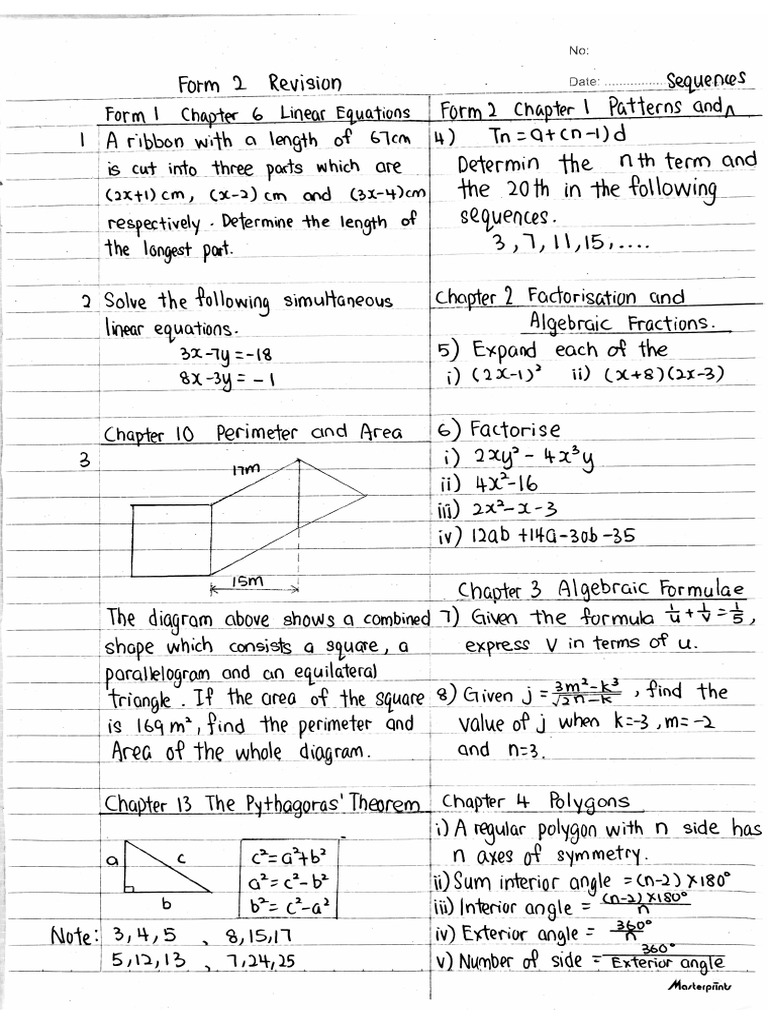 No:
Form 2 Revision
Date: ................. Sequences
Form 1 Chapter 6 Linear Equations
1 A ribbon with a length of 67cm
is cut into three parts which are
(2x+1) cm, (x-2) cm and (3x-4)cm
respectively. Determine the length of
the longest part.
2 Solve the following simultaneous
linear equations.
3x-7y=-18
8x-3y=-1
Chapter 10 Perimeter and Area
3
17m
15m
The diagram above shows a combined
shape which consists a square, a
parallelogram and an equilateral
triangle. If the area of the square
is 169 m², find the perimeter and
Area of the whole diagram.
Chapter 13 The Pythagoras' Theorem
a c
b
c²=a²+b²
a²=c²-b²
b²=c²-a²
Note: 3,4,5 , 8,15,17
5,12,13 , 7,24,25
Form 2 Chapter 1 Patterns and ^
4) Tn=a+(n-1)d
Determin the nth term and
the 20th in the following
sequences.
3,7,11,15,....
Chapter 2 Factorisation and
Algebraic Fractions.
5) Expand each of the
i) (2x-1)² ii) (x+8)(2x-3)
6) Factorise
i) 2xy²-4x³y
ii) 4x²-16
iii) 2x²-x-3
iv) 12ab+14a-30b-35
Chapter 3 Algebraic Formulae
7) Given the formula 1/u+1/v=1/5,
express v in terms of u.
8) Given j=3m²-k³/√2n-k, find the
value of j when k=-3, m=-2
and n=3.
Chapter 4 Polygons
i) A regular polygon with n side has
n axes of symmetry.
ii) Sum interior angle =(n-2)×180°
iii) Interior angle = (n-2)×180°/n
iv) Exterior angle = 360°/n
v) Number of side = 360°/Exterior angle
Masterprints